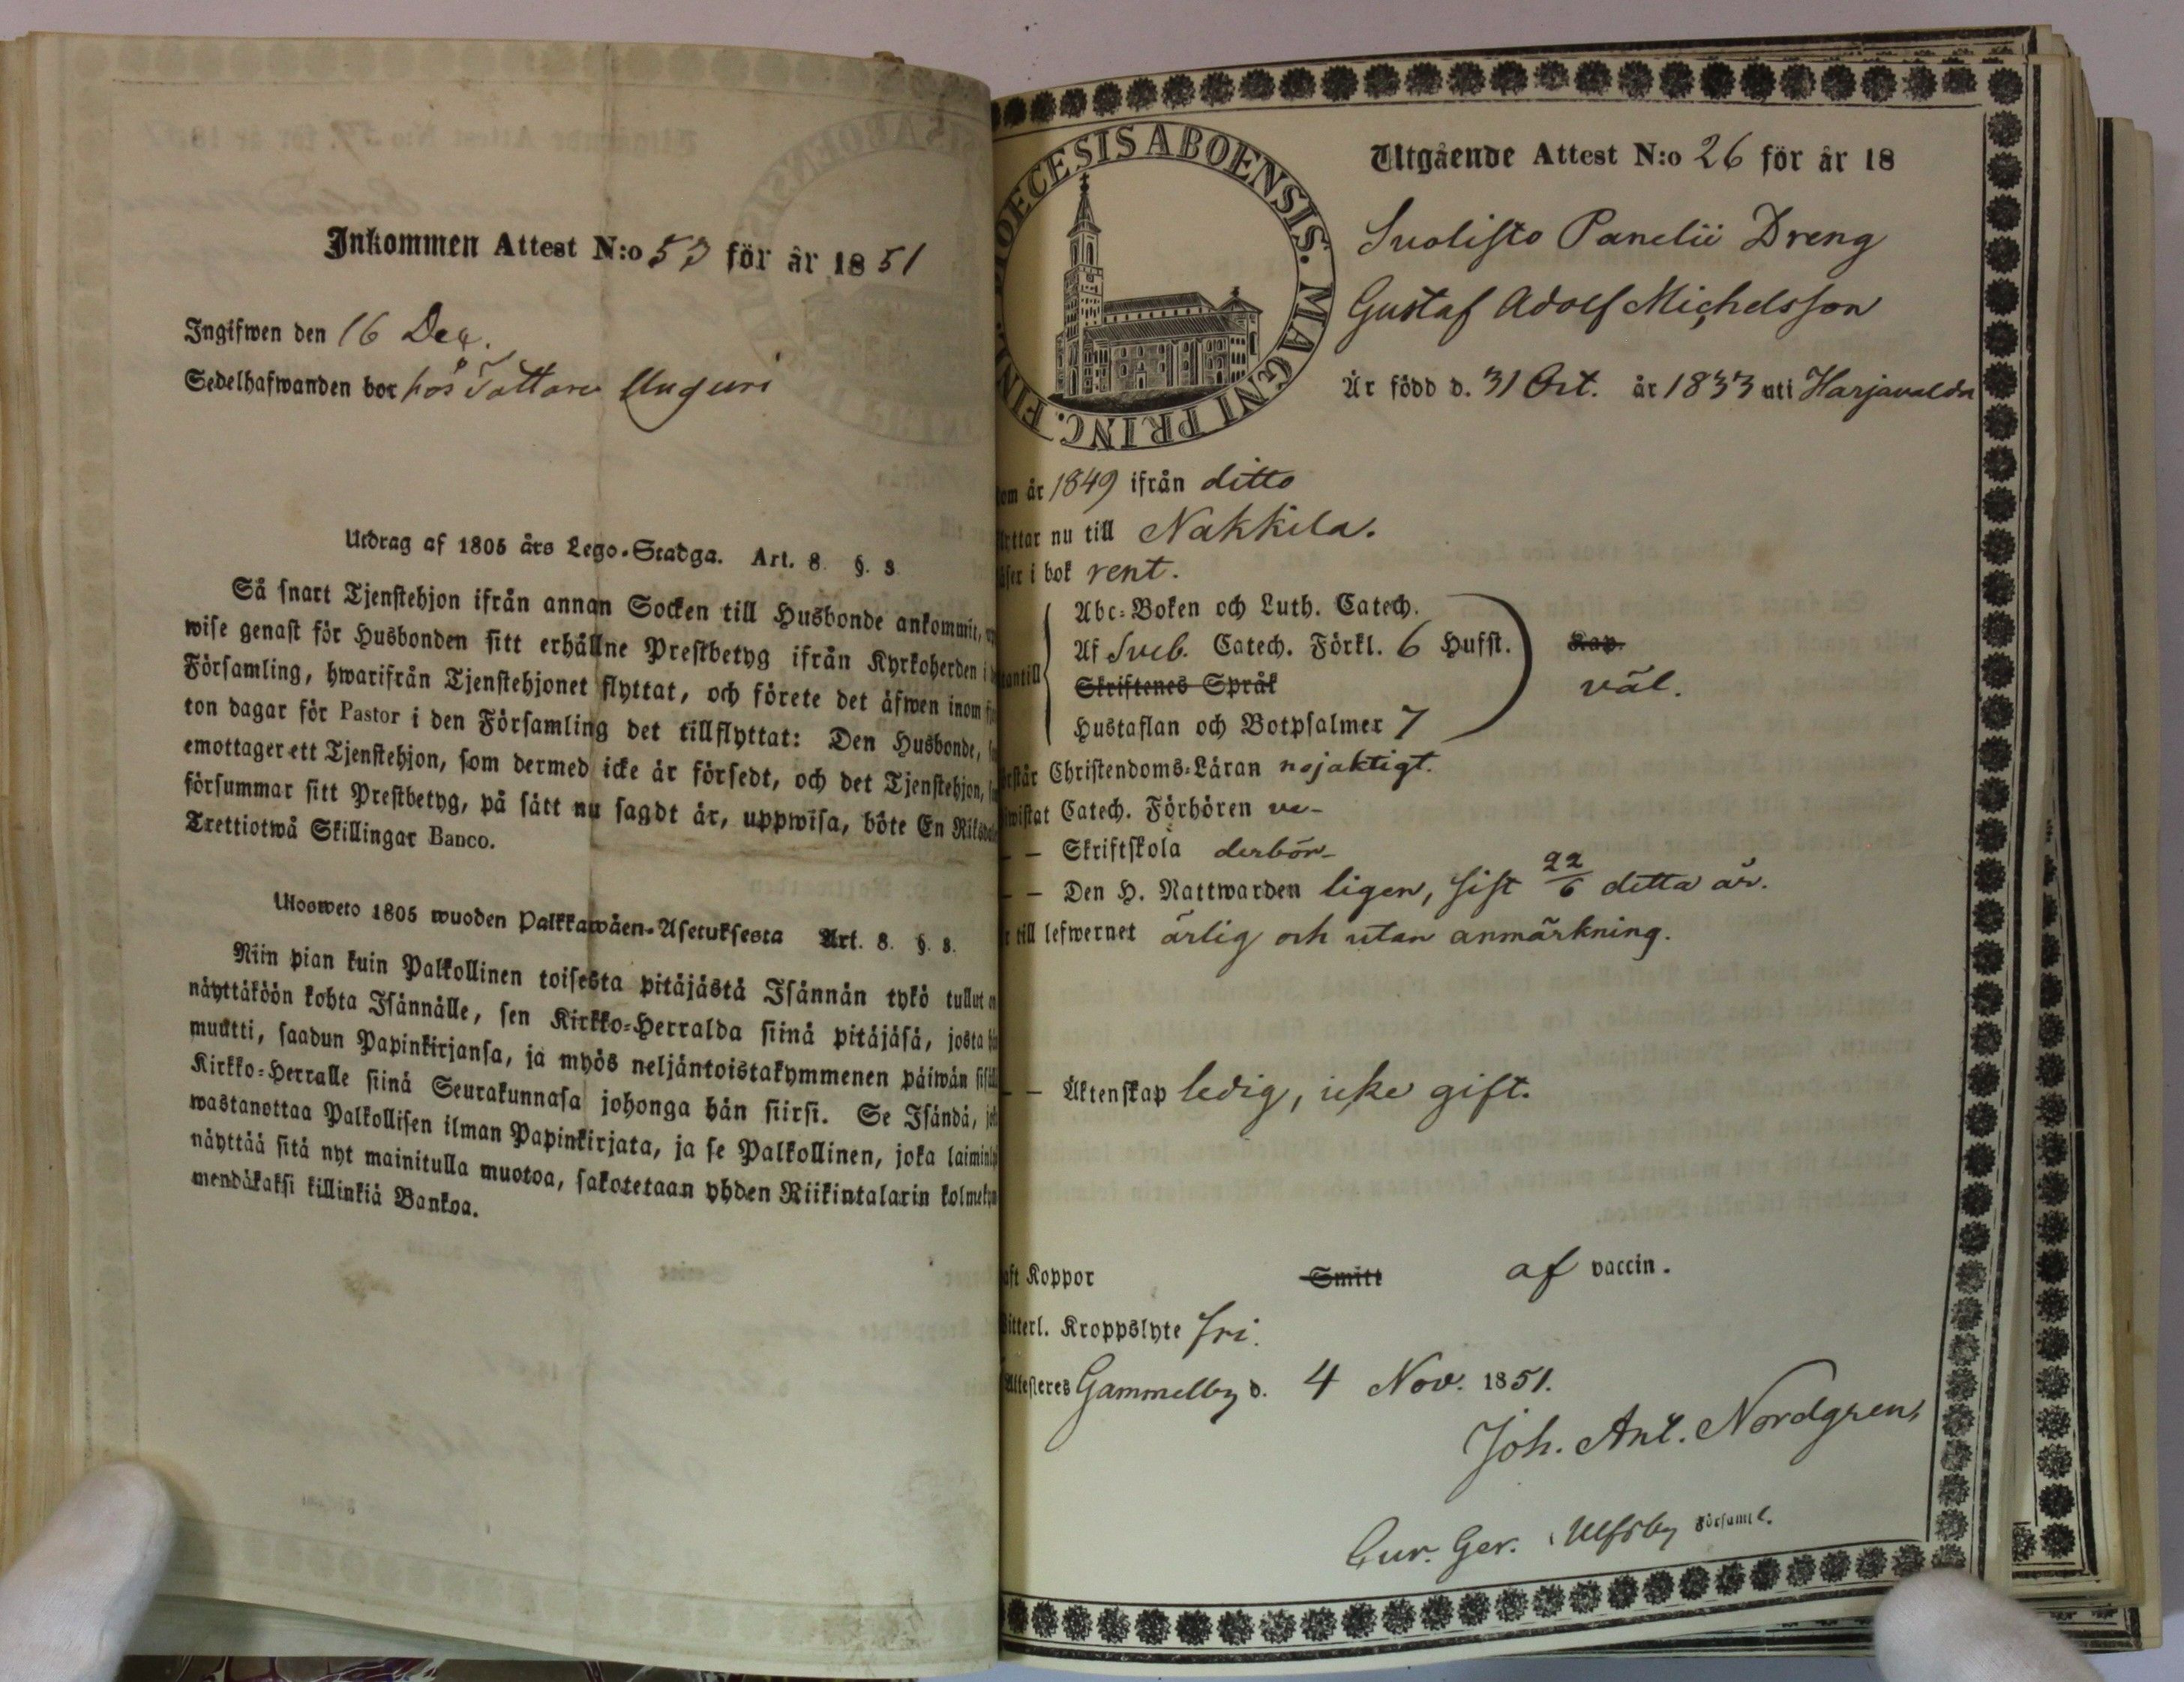 Inkommen Attest N:o 53 för år 1851
Ingifwen den 16 Dec.
Sedelhafwanden bor hos Tattare Unguri
Utdrag af 1805 års Lego-Stadga. Art. 8. §. 8.
Så snart Tjenstehjon ifrån annan Socken till Husbonde ankommit,
wise genast för Husbonden sitt erhållne Prestbetyg ifrån Kyrkoherden i
Församling, hwarifrån Tjenstehjonet flyttat, och förete det äfwen inom
ton dagar för Pastor i den Församling det tillflyttat: Den Husbonde,
emottager ett Tjenstehjon, som dermed icke är försedt, och det Tjenstehjon,
försummar sitt Prestbetyg, på sätt nu sagdt är, uppwisa, böte En Riksdal
Trettiotwå Skillingar Banco.
Ulosweto 1805 wuoden Palkkawäen-Asetuksesta Art. 8. §. 8.
Niin pian kuin Palkollinen toisesta pitäjästä Isännän tykö tullut on
näyttäköön kohta Isännälle, sen Kirkko-Herralda siinä pitäjäsä, josta
muutti, saadun Papinkirjansa, ja myös neljäntoistakymmenen päiwän
Kirkko-Herralle siinä Seurakunnasa johonga hän siirsi. Se Isändä,
wastanottaa Palkollisen ilman Papinkirjata, ja se Palkollinen, joka
näyttää sitä nyt mainitulla muotoa, sakotetaan yhden Riikintalarin
mendäkaksi killinkiä Bankoa.
DIOECESIS ABOENSIS. MAGNI PRINC. FINL.
Utgående Attest N:o 26 för år 18
Suolisto Panelii Dreng
Gustaf Adolf Michelsson
Är född d. 31 Oct. år 1833 uti Harjavalda
om år 1849 ifrån ditto
nu till Nakkila.
i bok rent.
Abc-Boken och Luth. Catech.
Af Sveb. Catech. Förkl. 6 Hufst. Kap.
antill Skriftenes Språk väl.
Hustaflan och Botpsalmer 7
Christendoms-Läran nojaktigt.
wistat Catech. Förhören ve-
– – Skriftskola derbör-
– – Den H. Nattwarden ligen, sist 22/6 detta år.
till lefwernet ärlig och utan anmärkning.
– – Äktenskap ledig, icke gift.
aft Koppor Smitt af vaccin.
itterl. Kroppslyte fri.
Attesteres Gammelby d. 4 Nov. 1851.
Joh. Ant. Nordgren,
Cur. Ger. i Ulfsby Församl.